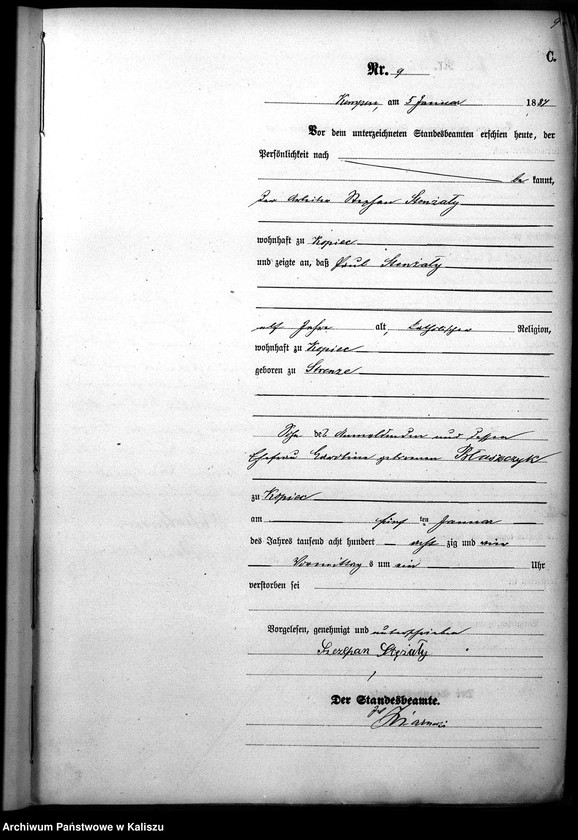 9
C.
Nr. 9
Kempen, am 5 Januar 1884
Vor dem unterzeichneten Standesbeamten erschien heute, der
Persönlichkeit nach
be kannt,
der Arbeiter Stephan Stenzaly
wohnhaft zu Kopiec
und zeigte an, daß Paul Stenzaly
elf Jahre alt, katholischer Religion,
wohnhaft zu Kopiec
geboren zu Strenze
Sohn des Anmeldenden und dessen
Ehefrau Caroline geborenen Bluszczyk
zu Kopiec
am fünf ten Januar
des Jahres tausend acht hundert acht zig und vier
Vormittag s um ein Uhr
verstorben sei
Vorgelesen, genehmigt und unterschrieben
Szczepan Stężały
Der Standesbeamte.
Archiwum Państwowe w Kaliszu